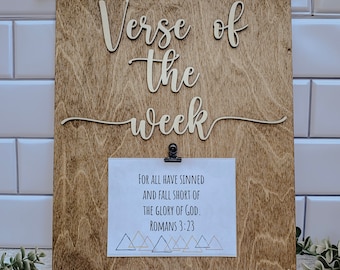 Verse of
the
week
For all have sinned
and fall short of
the glory of God.
Romans 3:23